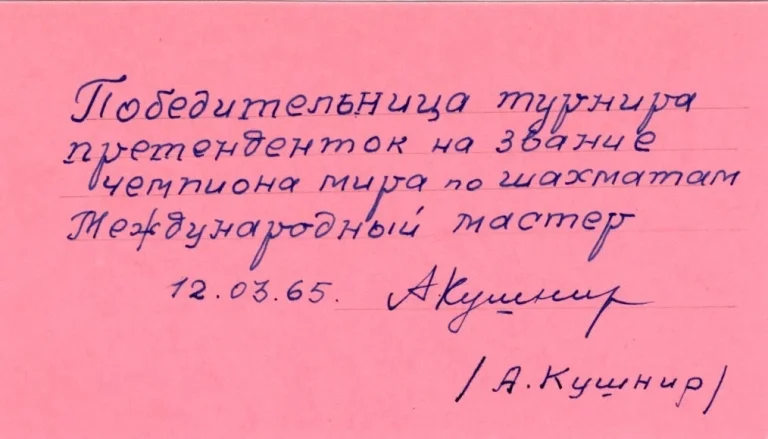 Победительница турнира
претенденток на звание
чемпиона мира по шахматам
Международный мастер
12.03.65. АКушнир
/А.Кушнир/